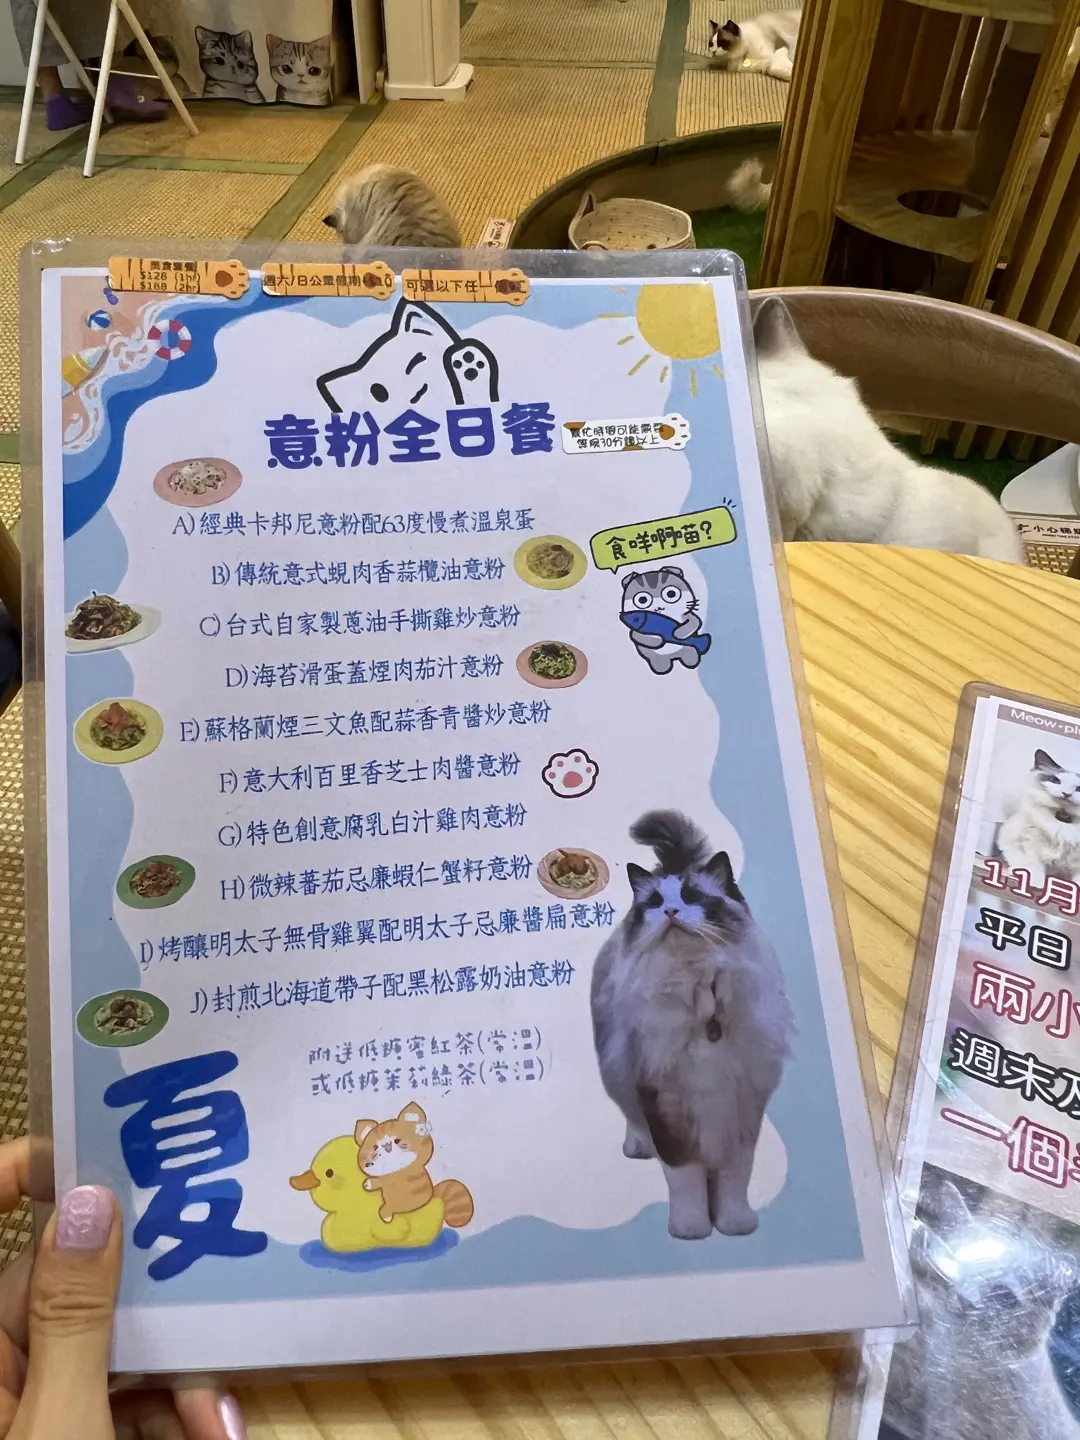 美食套餐
$128 (1hr)
$188 (2hr)
週六/日公眾假期+$10
可選以下任一
意粉全日餐
繁忙時間可能需要
等候30分鐘以上
A)經典卡邦尼意粉配63度慢煮溫泉蛋
B)傳統意式蜆肉香蒜欖油意粉
食咩啊喵?
C)台式自家製蔥油手撕雞炒意粉
D)海苔滑蛋蓋煙肉茄汁意粉
E)蘇格蘭煙三文魚配蒜香青醬炒意粉
F)意大利百里香芝士肉醬意粉
G)特色創意腐乳白汁雞肉意粉
H)微辣蕃茄忌廉蝦仁蟹籽意粉
I)烤釀明太子無骨雞翼配明太子忌廉醬扁意粉
J)封煎北海道帶子配黑松露奶油意粉
附送低糖蜜紅茶(常溫)
或低糖茉莉綠茶(常溫)
夏
小心梯
Meow
11月
平日
兩小
週末及
一個